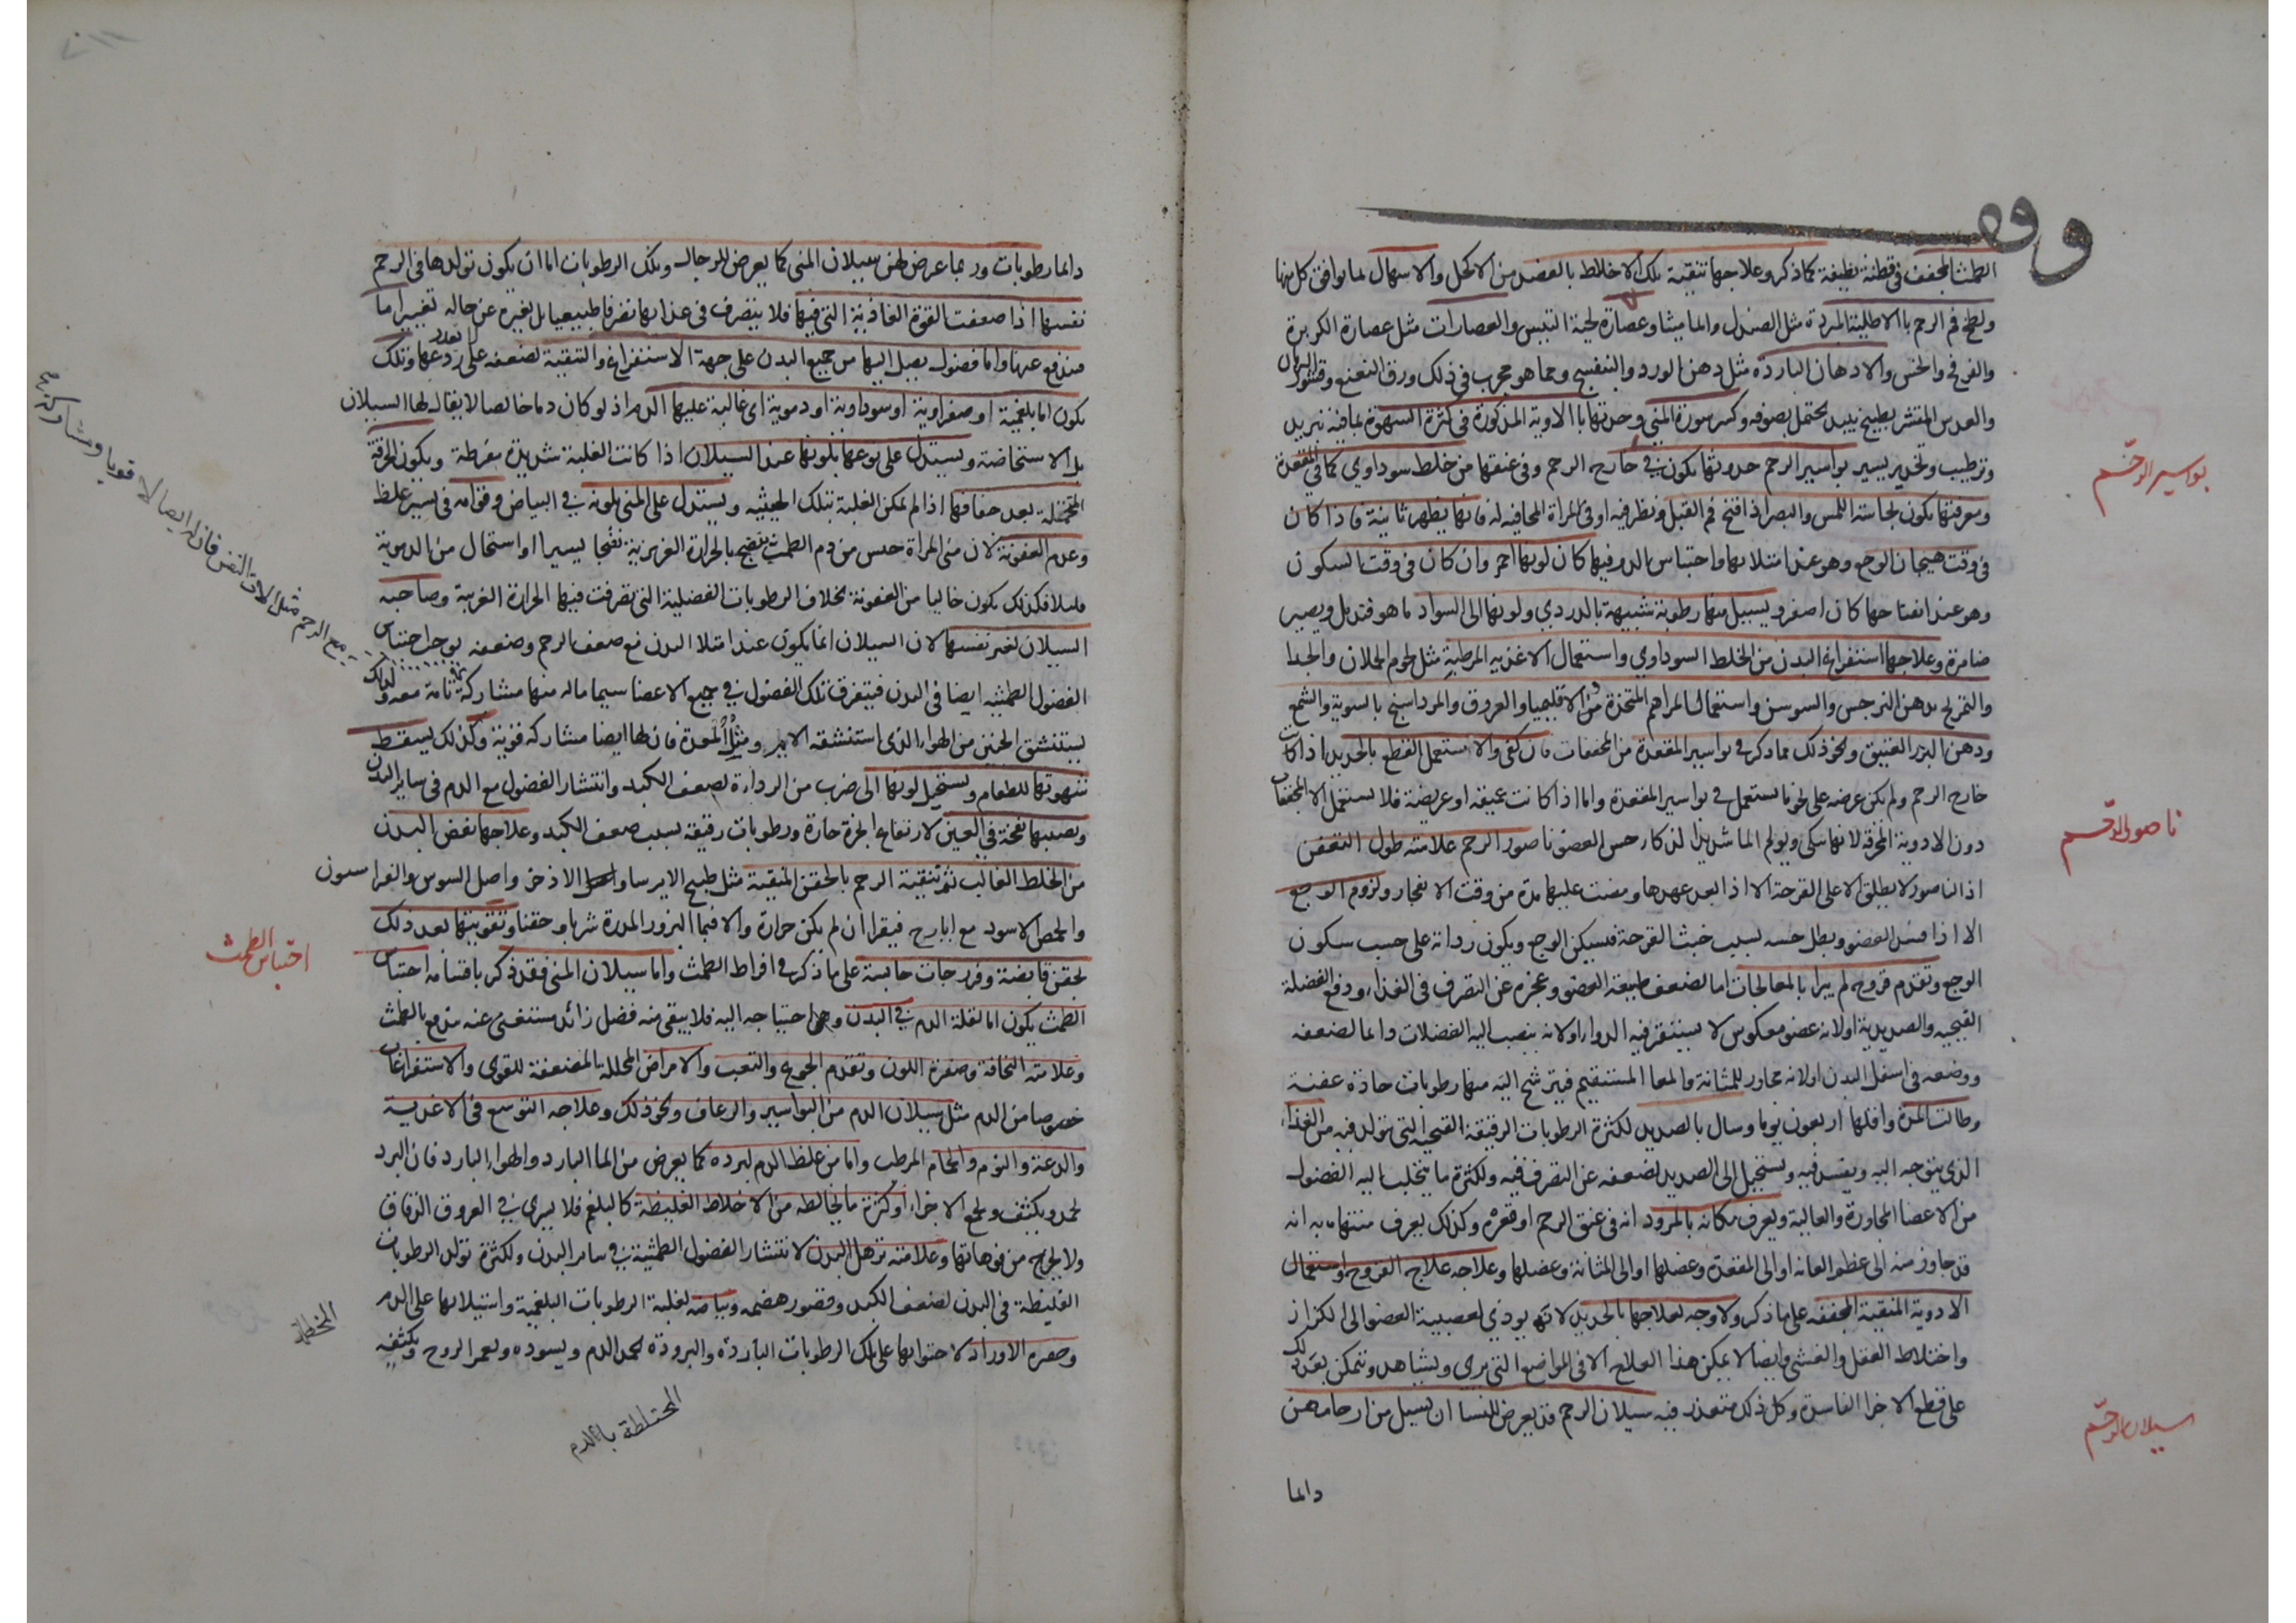 وقف
الطمث المجفف فى قطنة نظيفة كما ذكر وعلاجها تنقية تلك الاخلاط بالفصد من الاكحل والاسهال لما يوافق كل منها
ولطخ فم الرحم بالاطلية المبردة مثل الصندل والماميثا وعصارة لحية التيس والعصارات مثل عصارة الكزبرة
والقرفخ والخس والادهان الباردة مثل دهن الورد والبنفسج ومما هو مجرب فى ذلك ورق النعنع وقشور الرمان
والعدس المقشر يطبخ بنبيذ يحتمل بصوفه وكسر سورة المنى وحدتها بالادوية المذكورة فى كثرة الشهوة بما فيه تبريد
وترطيب وتخدير يسير بواسير الرحم حدوثها يكون فى خارج الرحم وفى عنقها من خلط سوداوي كما فى المقعدة
بواسير الرحم
ومعرفتها يكون بحاسة اللمس والبصر اذا فتح فم القبل ونظر فيه او فى المراة المحاذيه له فانها يظهر ثانية فاذا كان
فى وقت هيجان الوجع وهو عند امتلائها واحتباس الدم فيها كان لونها احمر وان كان فى وقت السكون
وهو عند انفتاحها كان اصفر ويسيل منها رطوبة شبيهة بالدردي ولونها الى السواد ما هو قتديل ويصير
ضامرة وعلاجها استفراغ البدن من الخلط السوداوي واستعمال الاغذيه المرطبة مثل لحوم الحملان والجدا
والتمريخ بدهن النرجس والسوسن واستعمال المراهم المتخذة من الاقليميا والعروق والمرداسنج بالسوية والشمع
ودهن البزر العتيق ونحو ذلك مما ذكر فى بواسير المقعدة من المجففات فان كفى والا استعمل القطع بالحديد اذا كانت
خارج الرحم ولم يكن عرضه على نحو ما يستعمل فى بواسير المقعدة واما اذا كانت عميقه او عريضة فلا يستعمل الا المجففات
دون الادوية المحرقة لانها تنكى ويولم الما شديدا لذكاء حس العضو ناصور الرحم علامته طول التعفن
ناصور الرحم
اذ الناصور لا يطلق الا على القرحة الا اذا بعد عهدها ومضت عليها مدة من وقت الانفجار ولزوم الوجع
الا اذا فسد العضو وبطل حسه بسبب خبث القرحة فيسكن الوجع ويكون ردائه على حسب سكون
الوجع وتقدم قروح لم يبرا بالمعالجات اما لضعف طبيعة العضو وعجزه عن التصرف فى الغذاء ودفع الفضلة
القيحيه والصديدية او لانه عضو معكوس لا يستقر فيه الدواء او لانه ينصب اليه الفضلات دائما لضعفه
ووضعه فى اسفل البدن او لانه مجاور للمثانة والمعا المستقيم فيترشح اليه منها رطوبات حادة عفنة
وطالت المدة واقلها اربعون يوما وسال بالصديد لكثرة الرطوبات الرقيقة القيحيه التى تولد فيه من الغذاء
الذي يتوجه اليه ويفسد فيه ويستحيل الى الصديد لضعفه عن التصرف فيه ولكثرة ما يتحلب اليه الفضول
من الاعضا المجاورة والعالية ويعرف مكانه بالمرود انه فى عنق الرحم او قعره وكذلك يعرف منتهاه به انه
قد جاوز منه الى عظم العانه او الى المقعدة وعضلها او الى المثانة وعضلها وعلاجه علاج القروح واستعمال
الادوية المنقية المجففه على ما ذكر ولا وجه لعلاجها بالحديد لانه يوذي لعصبية العضو الى الكزاز
واختلاط العقل والغشى وايضا لا يمكن هذا العلاج الا فى المواضع التى يرى ويشاهد ويتمكن بعد ذلك
على قطع الاجزا الفاسدة وكل ذلك متعذر فيه سيلان الرحم قد يعرض للنسا ان يسيل من ارحامهن
سيلان الرحم
دائما
دائما رطوبات وربما عرض لهن سيلان المنى كما يعرض للرجال وتلك الرطوبات اما ان يكون تولدها فى الرحم
نفسها اذا ضعفت القوة الغاذية التى فيها فلا يتصرف فى غذائها تصرفا طبيعيا بل تغيره عن حاله تغييرا ما
مندفع عنها واما فضول يصل اليها من جميع البدن على جهة الاستفراغ والتنقية لضعفه على ردعها وتلك
يكون اما بلغمية او صفراوية او سوداوية او دموية اى غالبة عليها الدم اذ لو كان دما خالصا لا يقال لها السيلان
بل الاستحاضة ويستدل على نوعها بلونها عند السيلان اذا كانت الغلبة شديدة مفرطة ويكون الخرقة
المحتملة بعد جفافها اذا لم يمكن الغلبة بتلك الحيثيه ويستدل على المنى بلونه فى البياض وقوامه فى يسير غلظ
وعدم العفونة لان منى المراة جنس من دم الطمث ينضج بالحرارة الغريزية نضجا يسيرا او استحال من الدموية
قليلا فكذلك يكون خاليا من العفونة بخلاف الرطوبات الفضلية التى تصرفت فيها الحرارة الغريبة وصاحبه
السيلان لغير نفسها لان السيلان انما يكون عند امتلا البدن مع ضعف الرحم وضعفه يوجب احتباس
الفضول الطمثيه ايضا فى البدن فيتفرق تلك الفضول فى جميع الاعضا سيما ما له منها مشاركة تامة معه ولذلك
يستنشق الجنين من الهواء الذى استنشقه الام ومثل المعدة فان لها ايضا مشاركه قوية وكذلك يسقط
شهوتها للطعام ويستحيل لونها الى ضرب من الرداءة لضعف الكبد وانتشار الفضول مع الدم فى ساير البدن
ويصيبها نفخة فى العين لارتفاع ابخرة حارة ورطوبات رقيقة بسبب ضعف الكبد وعلاجها نفض البدن
من الخلط الغالب ثم تنقية الرحم بالحقن المنقية مثل طبيخ الايرسا واصل الاذخر واصل السوس والفراسيون
والحمص الاسود مع ايارج فيقرا ان لم يكن حرارة والا فبماء البزور المدرة شربا وحقنا وتقويتها بعد ذلك
بحقن قابضة وفرزجات حابسة على ما ذكر فى افراط الطمث واما سيلان المنى فقد ذكر باقسامه احتباس
احتباس الطمث
الطمث يكون اما لقلة الدم فى البدن واحتياجه اليه فلا يبقى منه فضل زائد مستغنى عنه يندفع بالطمث
وعلامته النحافة وصفرة اللون وتقدم الجوع والتعب والامراض المحللة المضعفة للقوى والاستفراغات
خصوصا من الدم مثل سيلان الدم من البواسير والرعاف ونحو ذلك وعلاجه التوسع فى الاغذية
والدعة والنوم والحمام المرطب واما من غلظ الدم لبرده كما يعرض من الماء البارد والهواء البارد فان البرد
يجمد ويكثف ويجمع الاجزاء او كثرة ما يخالطه من الاخلاط الغليظة كالبلغم فلا يسرى فى العروق الدقاق
ولا يخرج من فوهاتها وعلامته ترهل البدن لانتشار الفضول الطمثية فى سائر البدن ولكثرة تولد الرطوبات
الغليظة فى البدن لضعف الكبد وقصور هضمه وبياضه لغلبة الرطوبات البلغمية واستيلائها على الدم
وخضرة الاوراد لاحتوائها على تلك الرطوبات الباردة والبرودة تجمد الدم ويسوده ويغمر الروح ويكثفه
مع الرحم مثل الات النفس فان له ايضا لا قويا ومشاركة
المختلطة بالدم